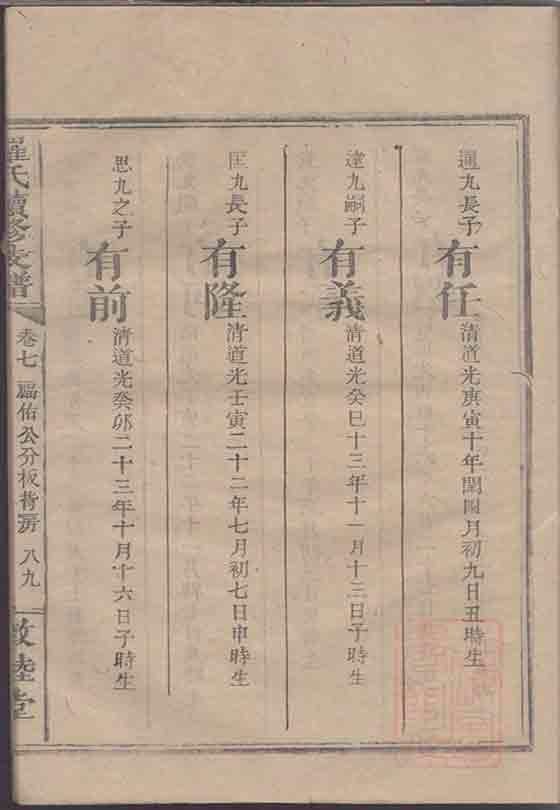 通九長子有任清道光庚寅十年閏四月初九日丑時生
達九嗣子有義清道光癸巳十三年十一月十三日子時生
匡九長子有隆清道光壬寅二十二年七月初七日申時生
思九之子有前清道光癸卯二十三年十月十六日子時生
羅氏續修支譜 卷七 福佑公分板背房 八九 敦睦堂